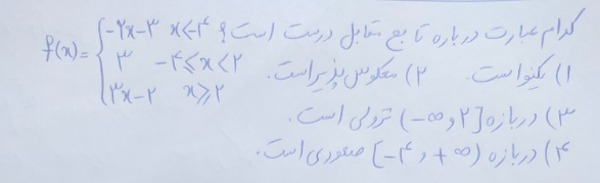 کدام عبارت درباره تابع مقابل درست است؟
f(x) = { -2x-3  x<-4
3  -4≤x<2
3x-2  x≥2
1) یکنواست. 2) معکوس پذیر است.
3) در بازه [2 و ∞-) نزولی است.
4) در بازه (∞+ و 4-] صعودی است.